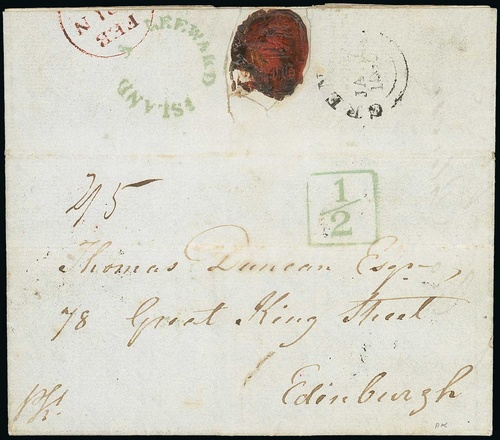 FEB
A LEEWARD
ISLAND
GREN
JA
1/2
2/5
Thomas Duncan Esqr,
78 Great King Street
Edinburgh